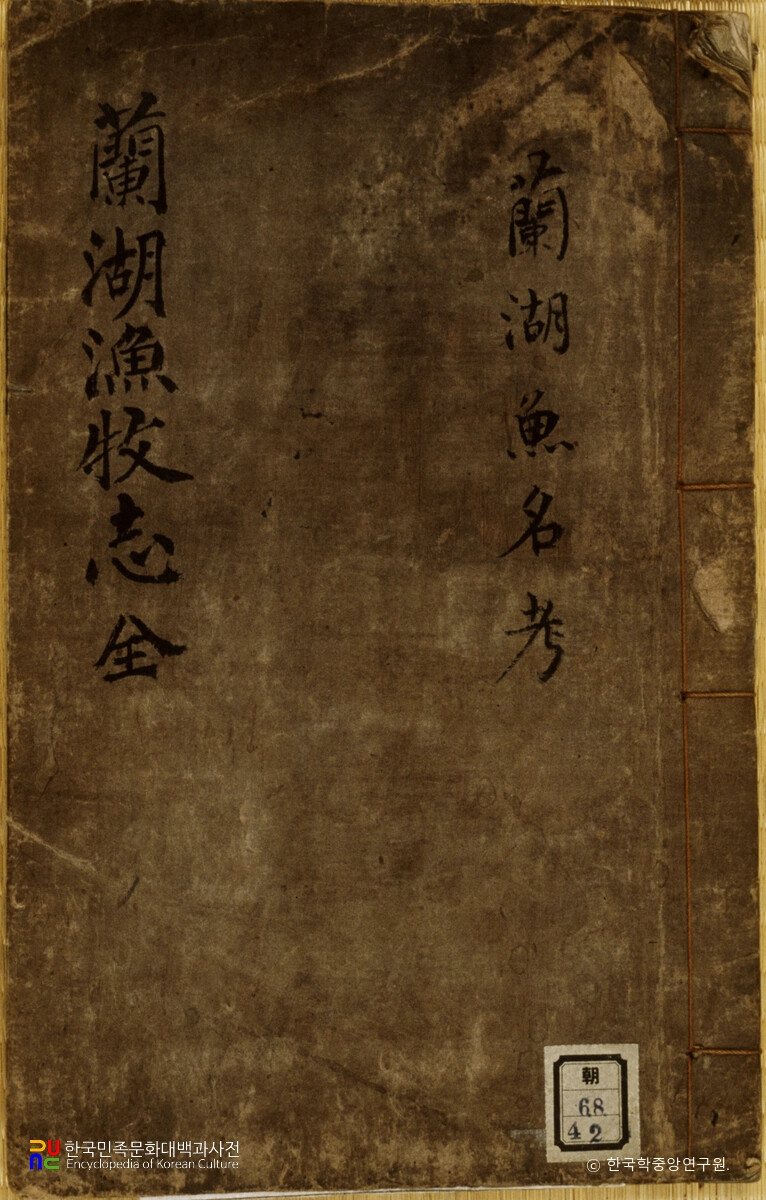 蘭湖魚名考
蘭湖漁牧志 全
朝
68
42
한국민족문화대백과사전
Encyclopedia of Korean Culture
© 한국학중앙연구원.